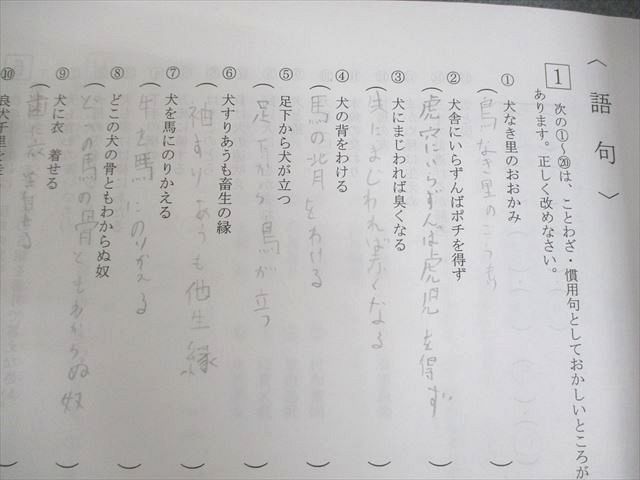 〈語句〉
1 次の①〜⑳は、ことわざ・慣用句としておかしいところが
あります。正しく改めなさい。
① 犬なき里のおおかみ
（鳥なき里のこうもり）
② 犬舎にいらずんばポチを得ず
（虎穴にいらずんば虎児を得ず）
③ 犬にまじわれば臭くなる
（朱にまじわれば赤くなる）
④ 犬の背をわける
（馬の背をわける）
⑤ 足下から犬が立つ
（足下から鳥が立つ）
⑥ 犬すりあうも畜生の縁
（袖すりあうも他生縁）
⑦ 犬を馬にのりかえる
（牛を馬にのりかえる）
⑧ どこの犬の骨ともわからぬ奴
（どこの馬の骨ともわからぬ奴）
⑨ 犬に衣 着せる
（歯に衣着せる
⑩ 良犬千里を走